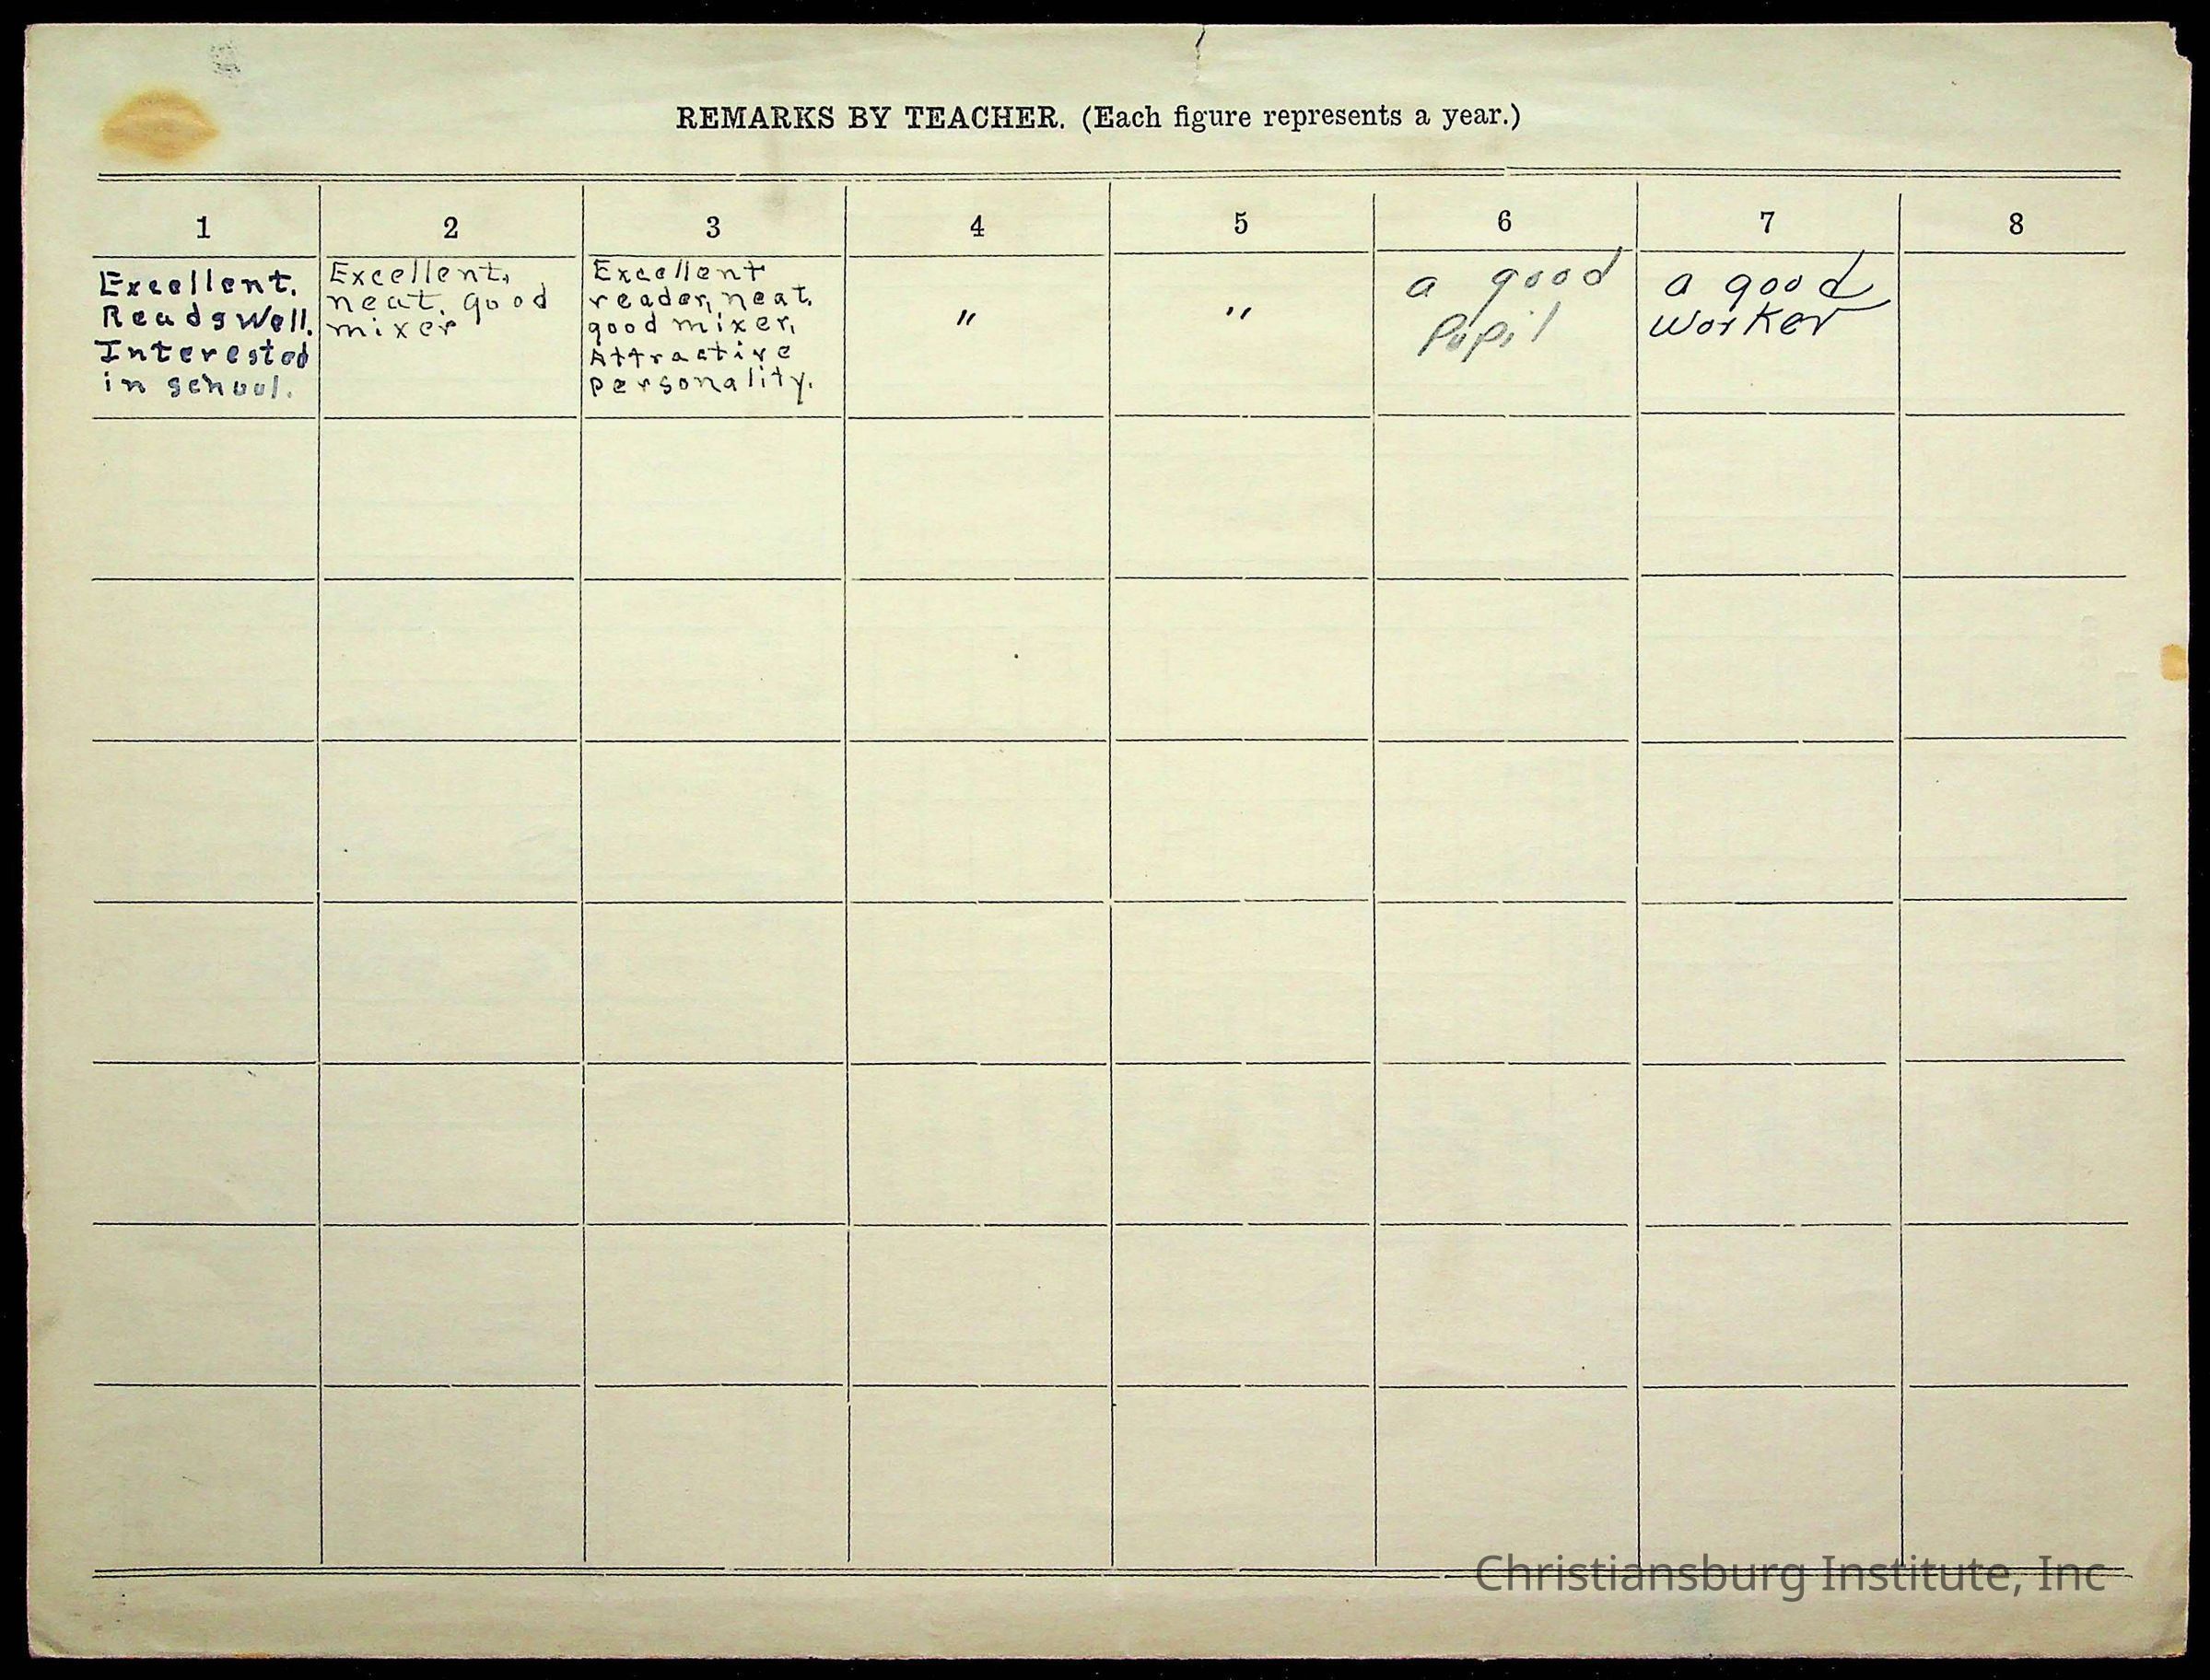 REMARKS BY TEACHER. (Each figure represents a year.)
1 2 3 4 5 6 7 8
Excellent.
Reads Well.
Interested
in school.
Excellent,
neat, good
mixer
Excellent
reader, neat,
good mixer,
Attractive
personality.
"
"
a good
Pupil
a good
Worker
Christiansburg Institute, Inc